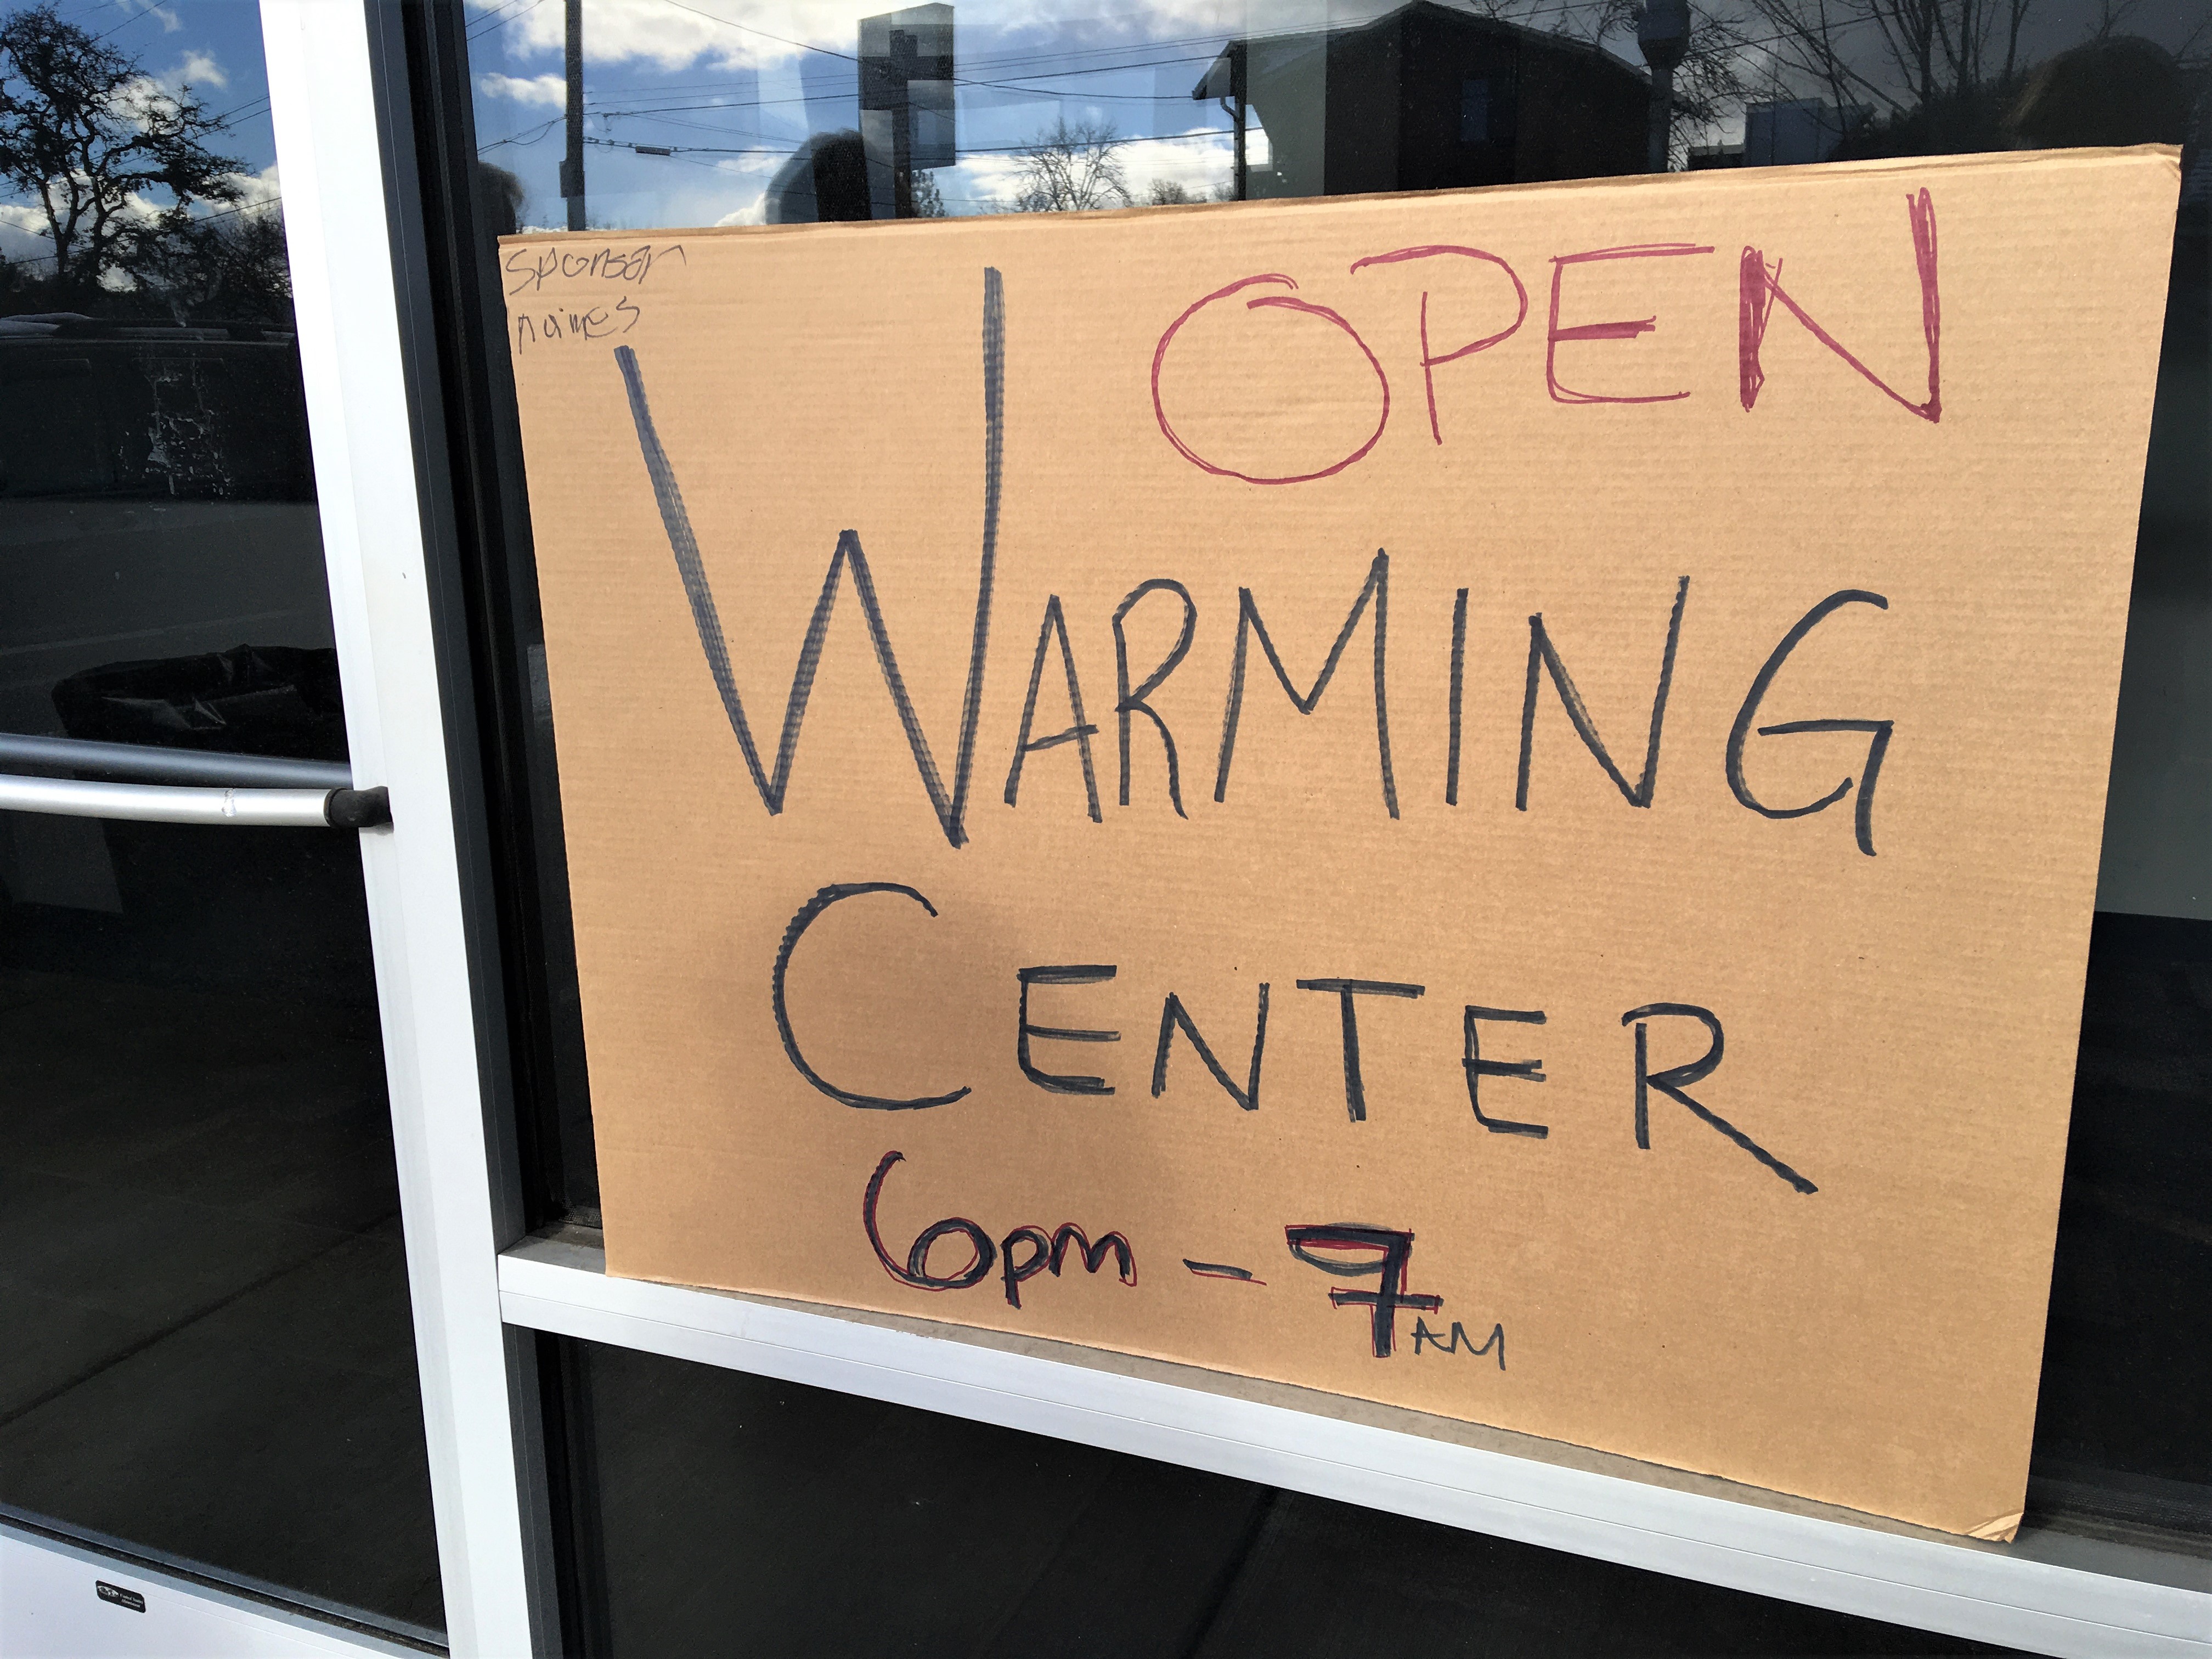 Sponser
names
OPEN
WARMING
CENTER
6pm - 7AM